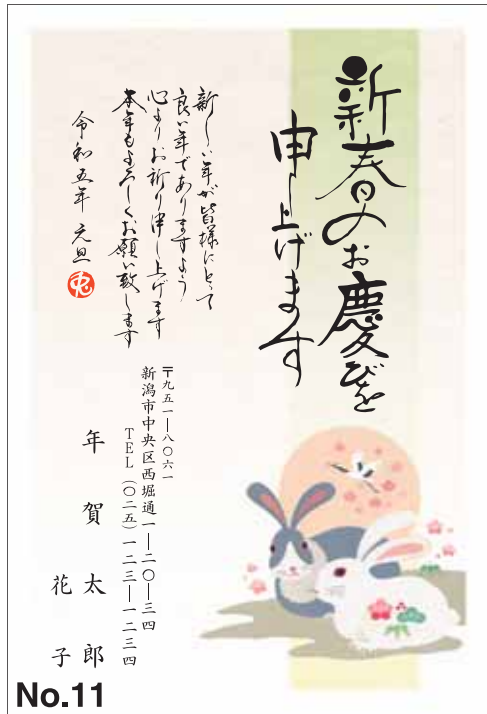 新春のお慶びを
申し上げます
新しい年が皆様にとって
良い年でありますよう
心よりお祈り申し上げます
本年もよろしくお願い致します
令和五年 元旦
兎
〒九五一―八〇六一
新潟市中央区西堀通一―二〇―三四
TEL（〇二五）一二三―一二三四
年賀太郎
花子
No.11